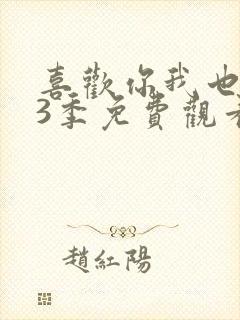 喜歡你我也
3季免費觀看
趙紅陽